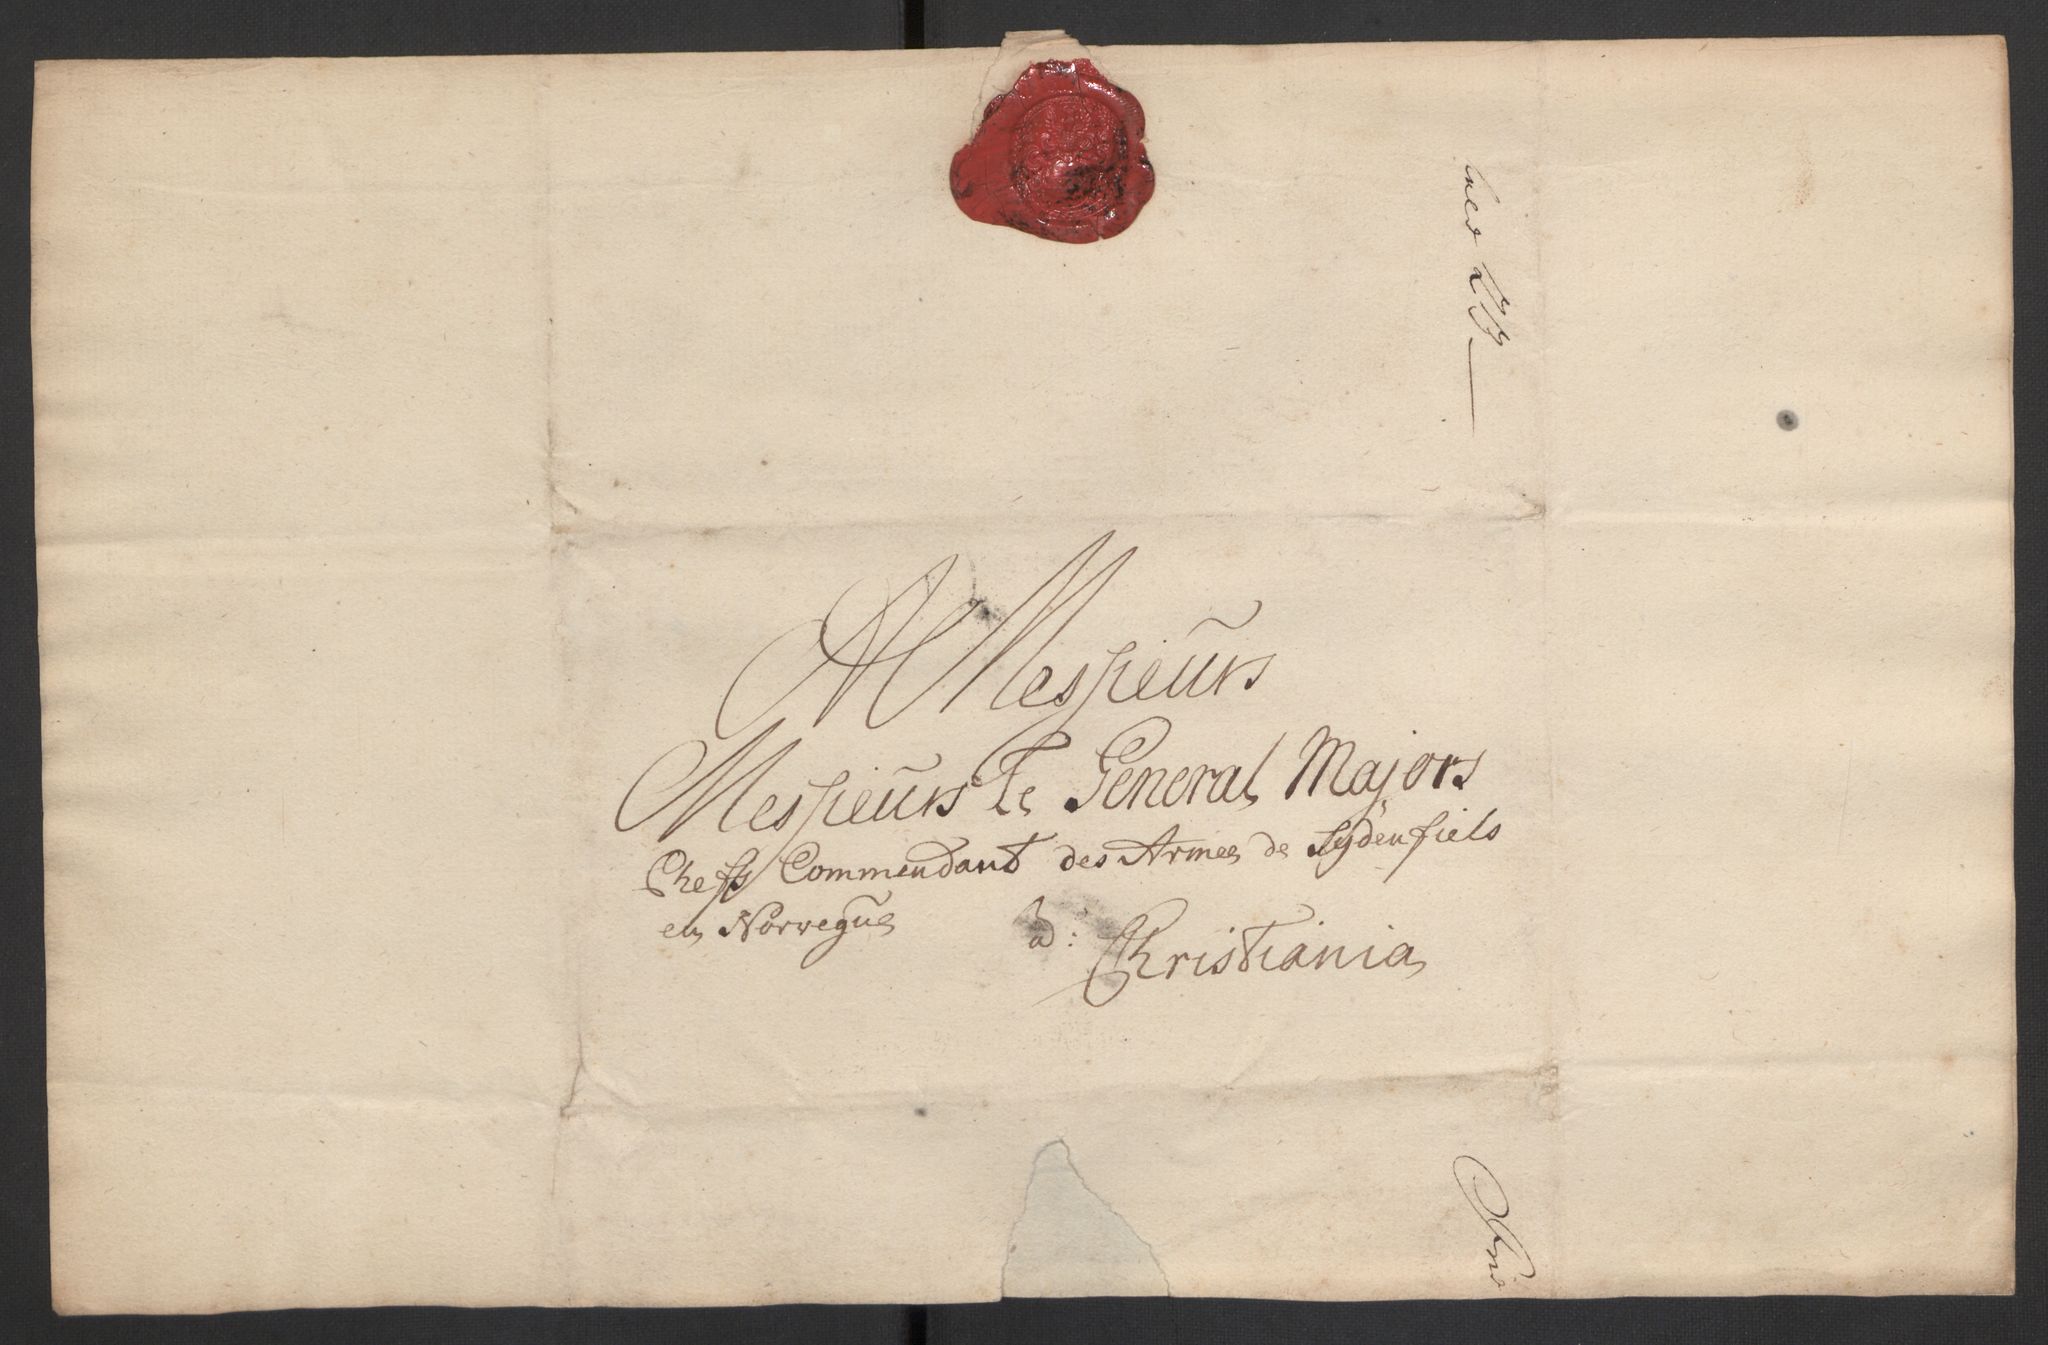 A Messieurs
Messieurs Le General Majors
Chefs Commendant des Armees de Sydenfiels
en Norvegue à: Christiania